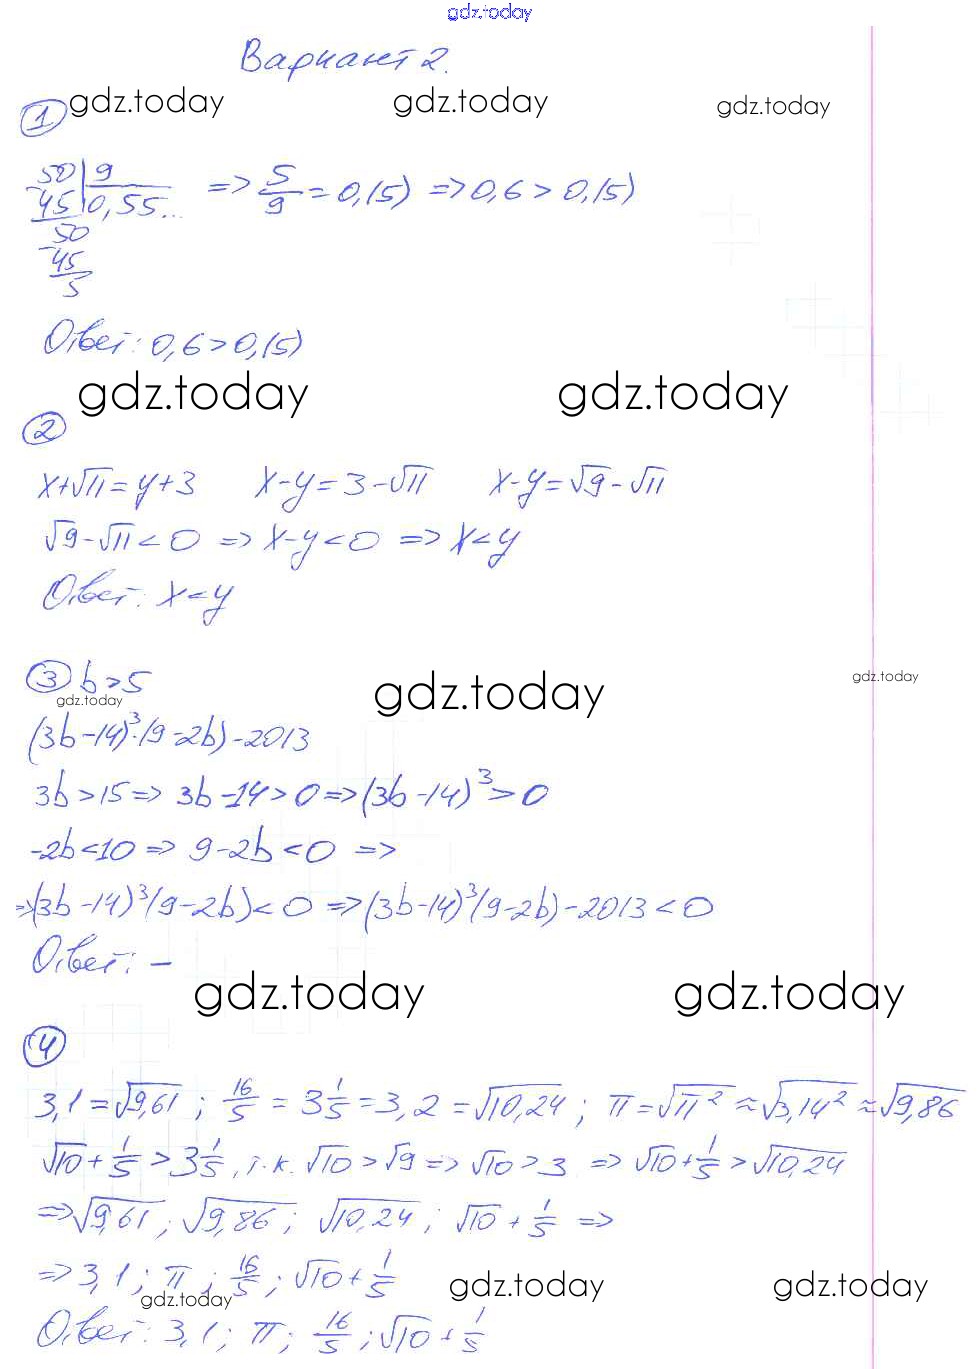 gdz.today
Вариант 2.
gdz.today gdz.today gdz.today
1
50 | 9
-45 0,55... => 5/9 = 0,(5) => 0,6 > 0,(5)
50
-45
5
Ответ: 0,6 > 0,(5)
gdz.today gdz.today
2
x+√11 = y+3 x-y = 3-√11 x-y = √9-√11
√9-√11 < 0 => x-y < 0 => x < y
Ответ: x < y
3 b > 5
gdz.today gdz.today gdz.today
(3b-14)³·(9-2b)-2013
3b > 15 => 3b-14 > 0 => (3b-14)³ > 0
-2b < 10 => 9-2b < 0 =>
=> (3b-14)³(9-2b) < 0 => (3b-14)³(9-2b)-2013 < 0
Ответ: –
gdz.today gdz.today
4
3,1 = √9,61 ; 16/5 = 3 1/5 = 3,2 = √10,24 ; π = √π² ≈ √3,14² ≈ √9,86
√10 + 1/5 > 3 1/5, т.к. √10 > √9 => √10 > 3 => √10 + 1/5 > √10,24
=> √9,61 ; √9,86 ; √10,24 ; √10 + 1/5 =>
=> 3,1 ; π ; 16/5 ; √10 + 1/5
gdz.today gdz.today gdz.today
Ответ: 3,1 ; π ; 16/5 ; √10 + 1/5